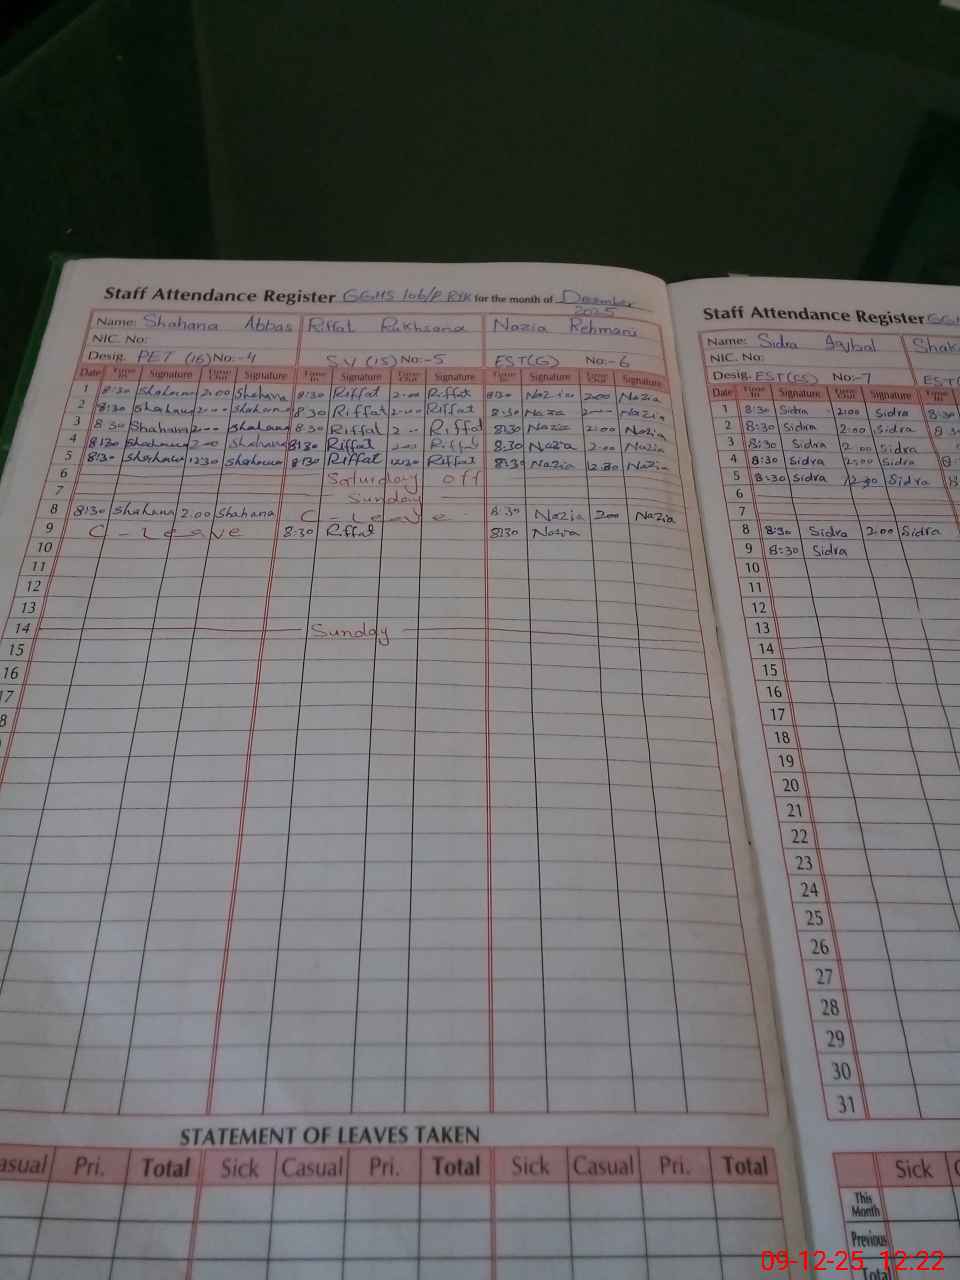 Staff Attendance Register GGHS 106/P RYK for the month of December 2025
Name: Shahana Abbas Riffat Rukhsana Nazia Rehmani
NIC. No:
Desig. PET (16) No:-4 S.V (15) No:-5 EST(G) No:-6
Date Time In Signature Time Out Signature Time In Signature Time Out Signature Time In Signature Time Out Signature
1 8:30 Shahana 2:00 Shahana 8:30 Riffat 2:00 Riffat 8:30 Nazia 2:00 Nazia
2 8:30 Shahana 2:00 Shahana 8:30 Riffat 2:00 Riffat 8:30 Nazia 2:00 Nazia
3 8:30 Shahana 2:00 Shahana 8:30 Riffat 2:00 Riffat 8:30 Nazia 2:00 Nazia
4 8:30 Shahana 2:00 Shahana 8:30 Riffat 2:00 Riffat 8:30 Nazia 2:00 Nazia
5 8:30 Shahana 12:30 Shahana 8:30 Riffat 12:30 Riffat 8:30 Nazia 12:30 Nazia
6 Saturday Off
7 Sunday
8 8:30 Shahana 2:00 Shahana C - Leave 8:30 Nazia 2:00 Nazia
9 C - Leave 8:30 Riffat 8:30 Nazia
10
11
12
13
14 Sunday
15
16
17
8
STATEMENT OF LEAVES TAKEN
asual Pri. Total Sick Casual Pri. Total Sick Casual Pri. Total
Staff Attendance Register GG
Name: Sidra Iqbal Shak
NIC. No:
Desig. EST(CS) No:-7 EST(
Date Time In Signature Time Out Signature Time In
1 8:30 Sidra 2:00 Sidra 8:30
2 8:30 Sidra 2:00 Sidra 8:3
3 8:30 Sidra 2:00 Sidra
4 8:30 Sidra 2:00 Sidra 8:
5 8:30 Sidra 12:30 Sidra 8
6
7
8 8:30 Sidra 2:00 Sidra
9 8:30 Sidra
10
11
12
13
14
15
16
17
18
19
20
21
22
23
24
25
26
27
28
29
30
31
Sick C
This Month
Previous
Total
09-12-25 12:22